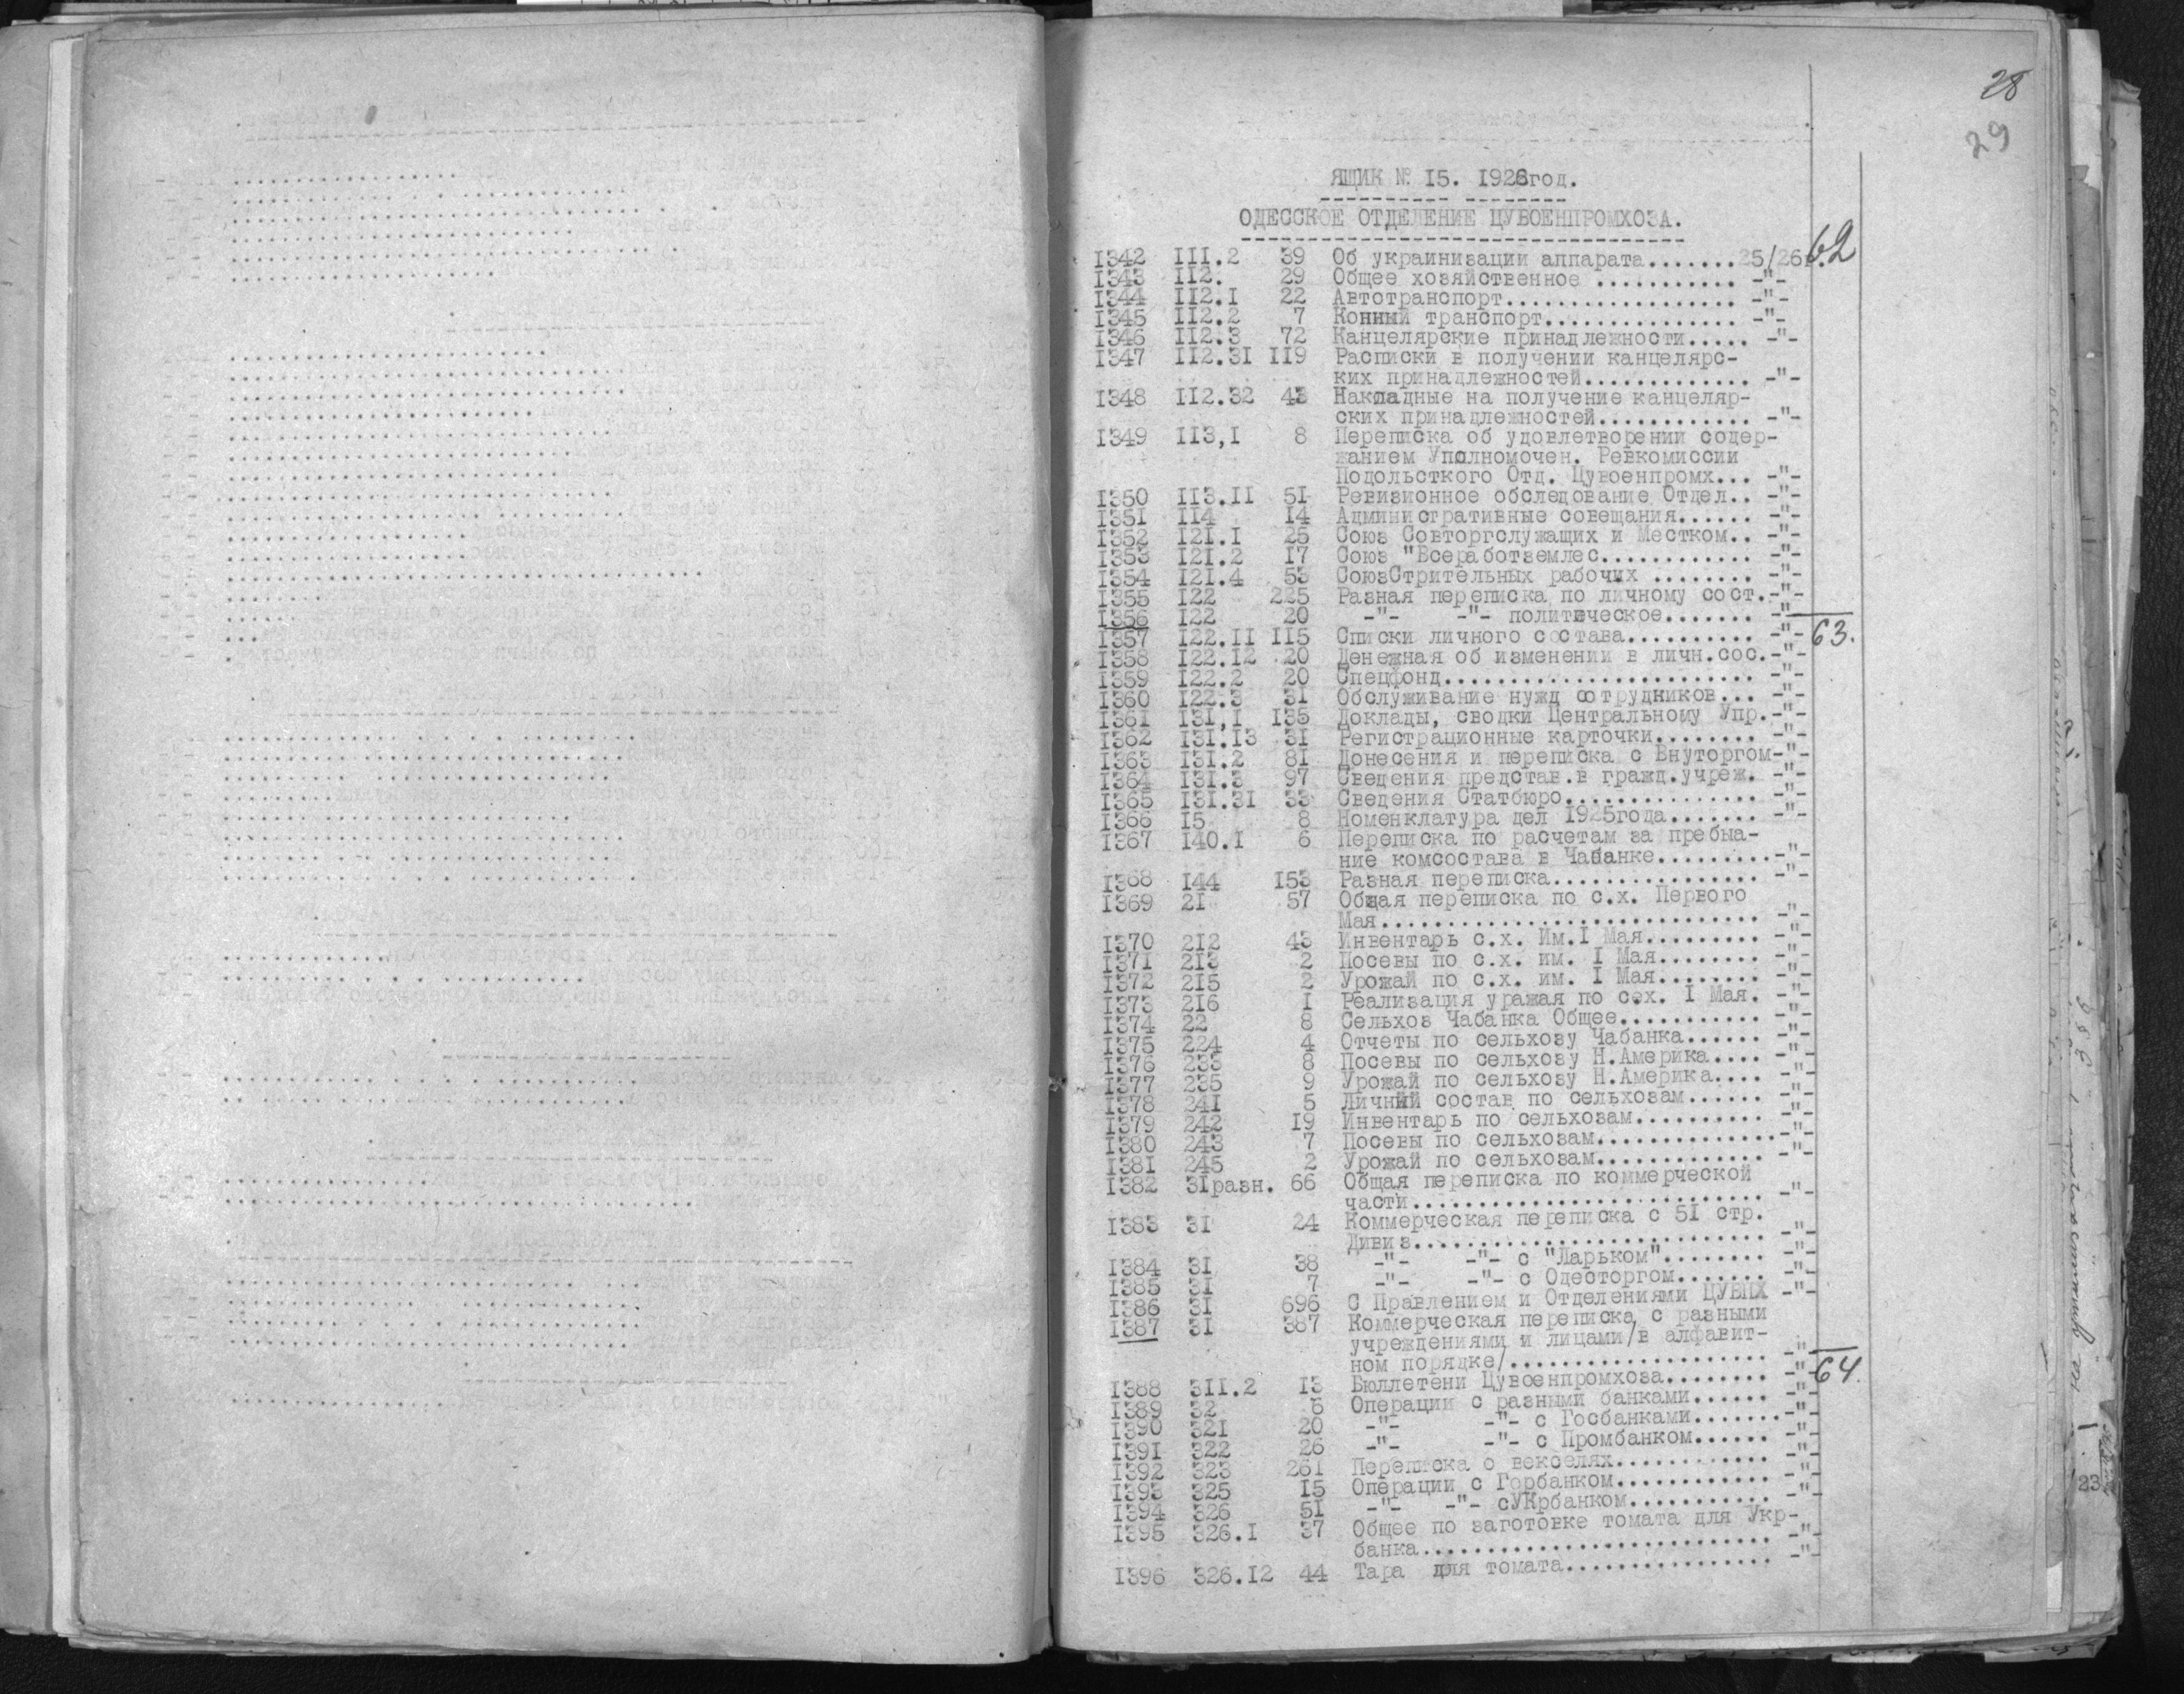 28
29
ЯЩИК № I5. 1926год.
ОДЕССКОЕ ОТДЕЛЕНИЕ ЦУВОЕНПРОМХОЗА.
I342 III.2 39 Об украинизации аппарата.......25/26г. 62
I343 II2. 29 Общее хозяйственное ........... -"-
I344 II2.I 22 Автотранспорт.................. -"-
I345 II2.2 7 Конный транспорт............... -"-
I346 II2.3 72 Канцелярские принадлежности..... -"-
I347 II2.3I II9 Расписки в получении канцелярс-
ких принадлежностей............. -"-
I348 II2.32 43 Накладные на получение канцеляр-
ских принадлежностей............ -"-
I349 II3,I 8 Переписка об удовлетворении содер-
жанием Уполномочен. Ревкомиссии
Подольсткого Отд. Цувоенпромх... -"-
I350 II3.II 5I Ревизионное обследование Отдел.. -"-
I351 II4 I4 Административные совещания...... -"-
I352 I2I.I 25 Союз Совторгслужащих и Местком.. -"-
I353 I2I.2 I7 Союз "Всеработземлес............ -"-
I354 I2I.4 53 СоюзСтрительных рабочих ........ -"-
I355 I22 225 Разная переписка по личному сост.-"-
I356 I22 20 -"- -"- политическое....... -"-
I357 I22.II II5 Списки личного состава.......... -"- 63.
I358 I22.I2 20 Денежная об изменении в личн.сос.-"-
I359 I22.2 20 Спецфонд........................ -"-
I360 I22.3 3I Обслуживание нужд сотрудников... -"-
I36I I3I,I I35 Доклады, сводки Центральному Упр.-"-
I362 I3I.I3 3I Регистрационные карточки........ -"-
I363 I3I.2 8I Донесения и переписка с Внуторгом-"-
I364 I3I.3 97 Сведения представ.в гражд.учреж. -"-
I365 I3I.3I 33 Сведения Статбюро............... -"-
I366 I5 8 Номенклатура дел 1925года....... -"-
I367 I40.I 6 Переписка по расчетам за пребыа-
ние комсостава в Чабанке.........-"-
I368 I44 I53 Разная переписка................ -"-
I369 2I 57 Общая переписка по с.х. Первого
Мая............................. -"-
I370 2I2 43 Инвентарь с.х. Им.I Мая......... -"-
I37I 2I3 2 Посевы по с.х. им. I Мая........ -"-
I372 2I5 2 Урожай по с.х. им. I Мая........ -"-
I373 2I6 I Реализация уражая по сех. I Мая. -"-
I374 22 8 Сельхоз Чабанка Общее........... -"-
I375 224 4 Отчеты по сельхозу Чабанка...... -"-
I376 233 8 Посевы по сельхозу Н.Америка.... -"-
I377 235 9 Урожай по сельхозу Н.Америка.... -"-
I378 24I 5 Личный состав по сельхозам...... -"-
I379 242 I9 Инвентарь по сельхозам.......... -"-
I380 243 7 Посевы по сельхозам..............-"-
I38I 245 2 Урожай по сельхозам............. -"-
I382 3Iразн. 66 Общая переписка по коммерческой
части........................... -"-
I383 3I 24 Коммерческая переписка с 5I стр.
Дивиз........................... -"-
I384 3I 38 -"- -"- с "Ларьком"........ -"-
I385 3I 7 -"- -"- с Одесторгом....... -"-
I386 3I 696 С Правлением и Отделениями ЦУВПХ -"-
I387 3I 387 Коммерческая переписка с разными
учреждениями и лицами/в алфавит-
ном порядке/.................... -"-
I388 3II.2 I3 Бюллетени Цувоенпромхоза........ -"- 64.
I389 32 6 Операции с разными банками...... -"-
I390 32I 20 -"- -"- с Госбанками.......-"-
I39I 322 26 -"- -"- с Промбанком...... -"-
I392 323 26I Переписка о векселях............ -"-
I393 325 I5 Операции с Горбанком............ -"-
I394 326 5I -"- -"- сУКрбанком........... -"-
I395 326.I 37 Общее по заготовке томата для Укр-
банка........................... -"-
I396 326.I2 44 Тара для томата................ -"-
23